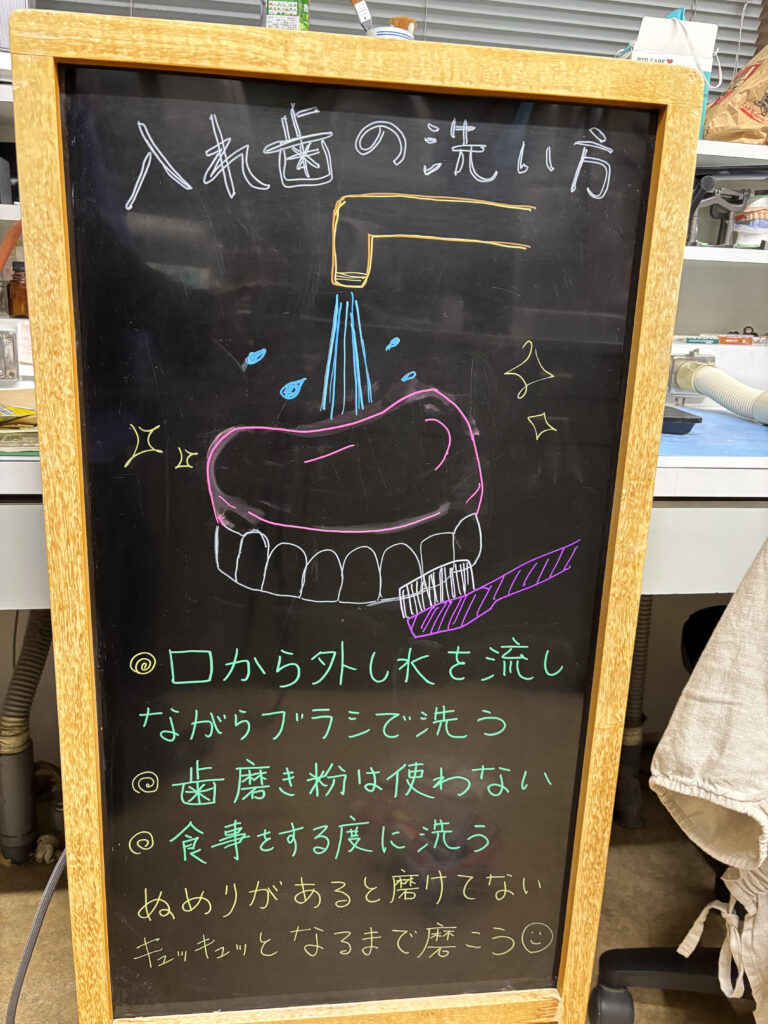 入れ歯の洗い方
口から外し水を流し
ながらブラシで洗う
歯磨き粉は使わない
食事をする度に洗う
ぬめりがあると磨けてない
キュッキュッとなるまで磨こう